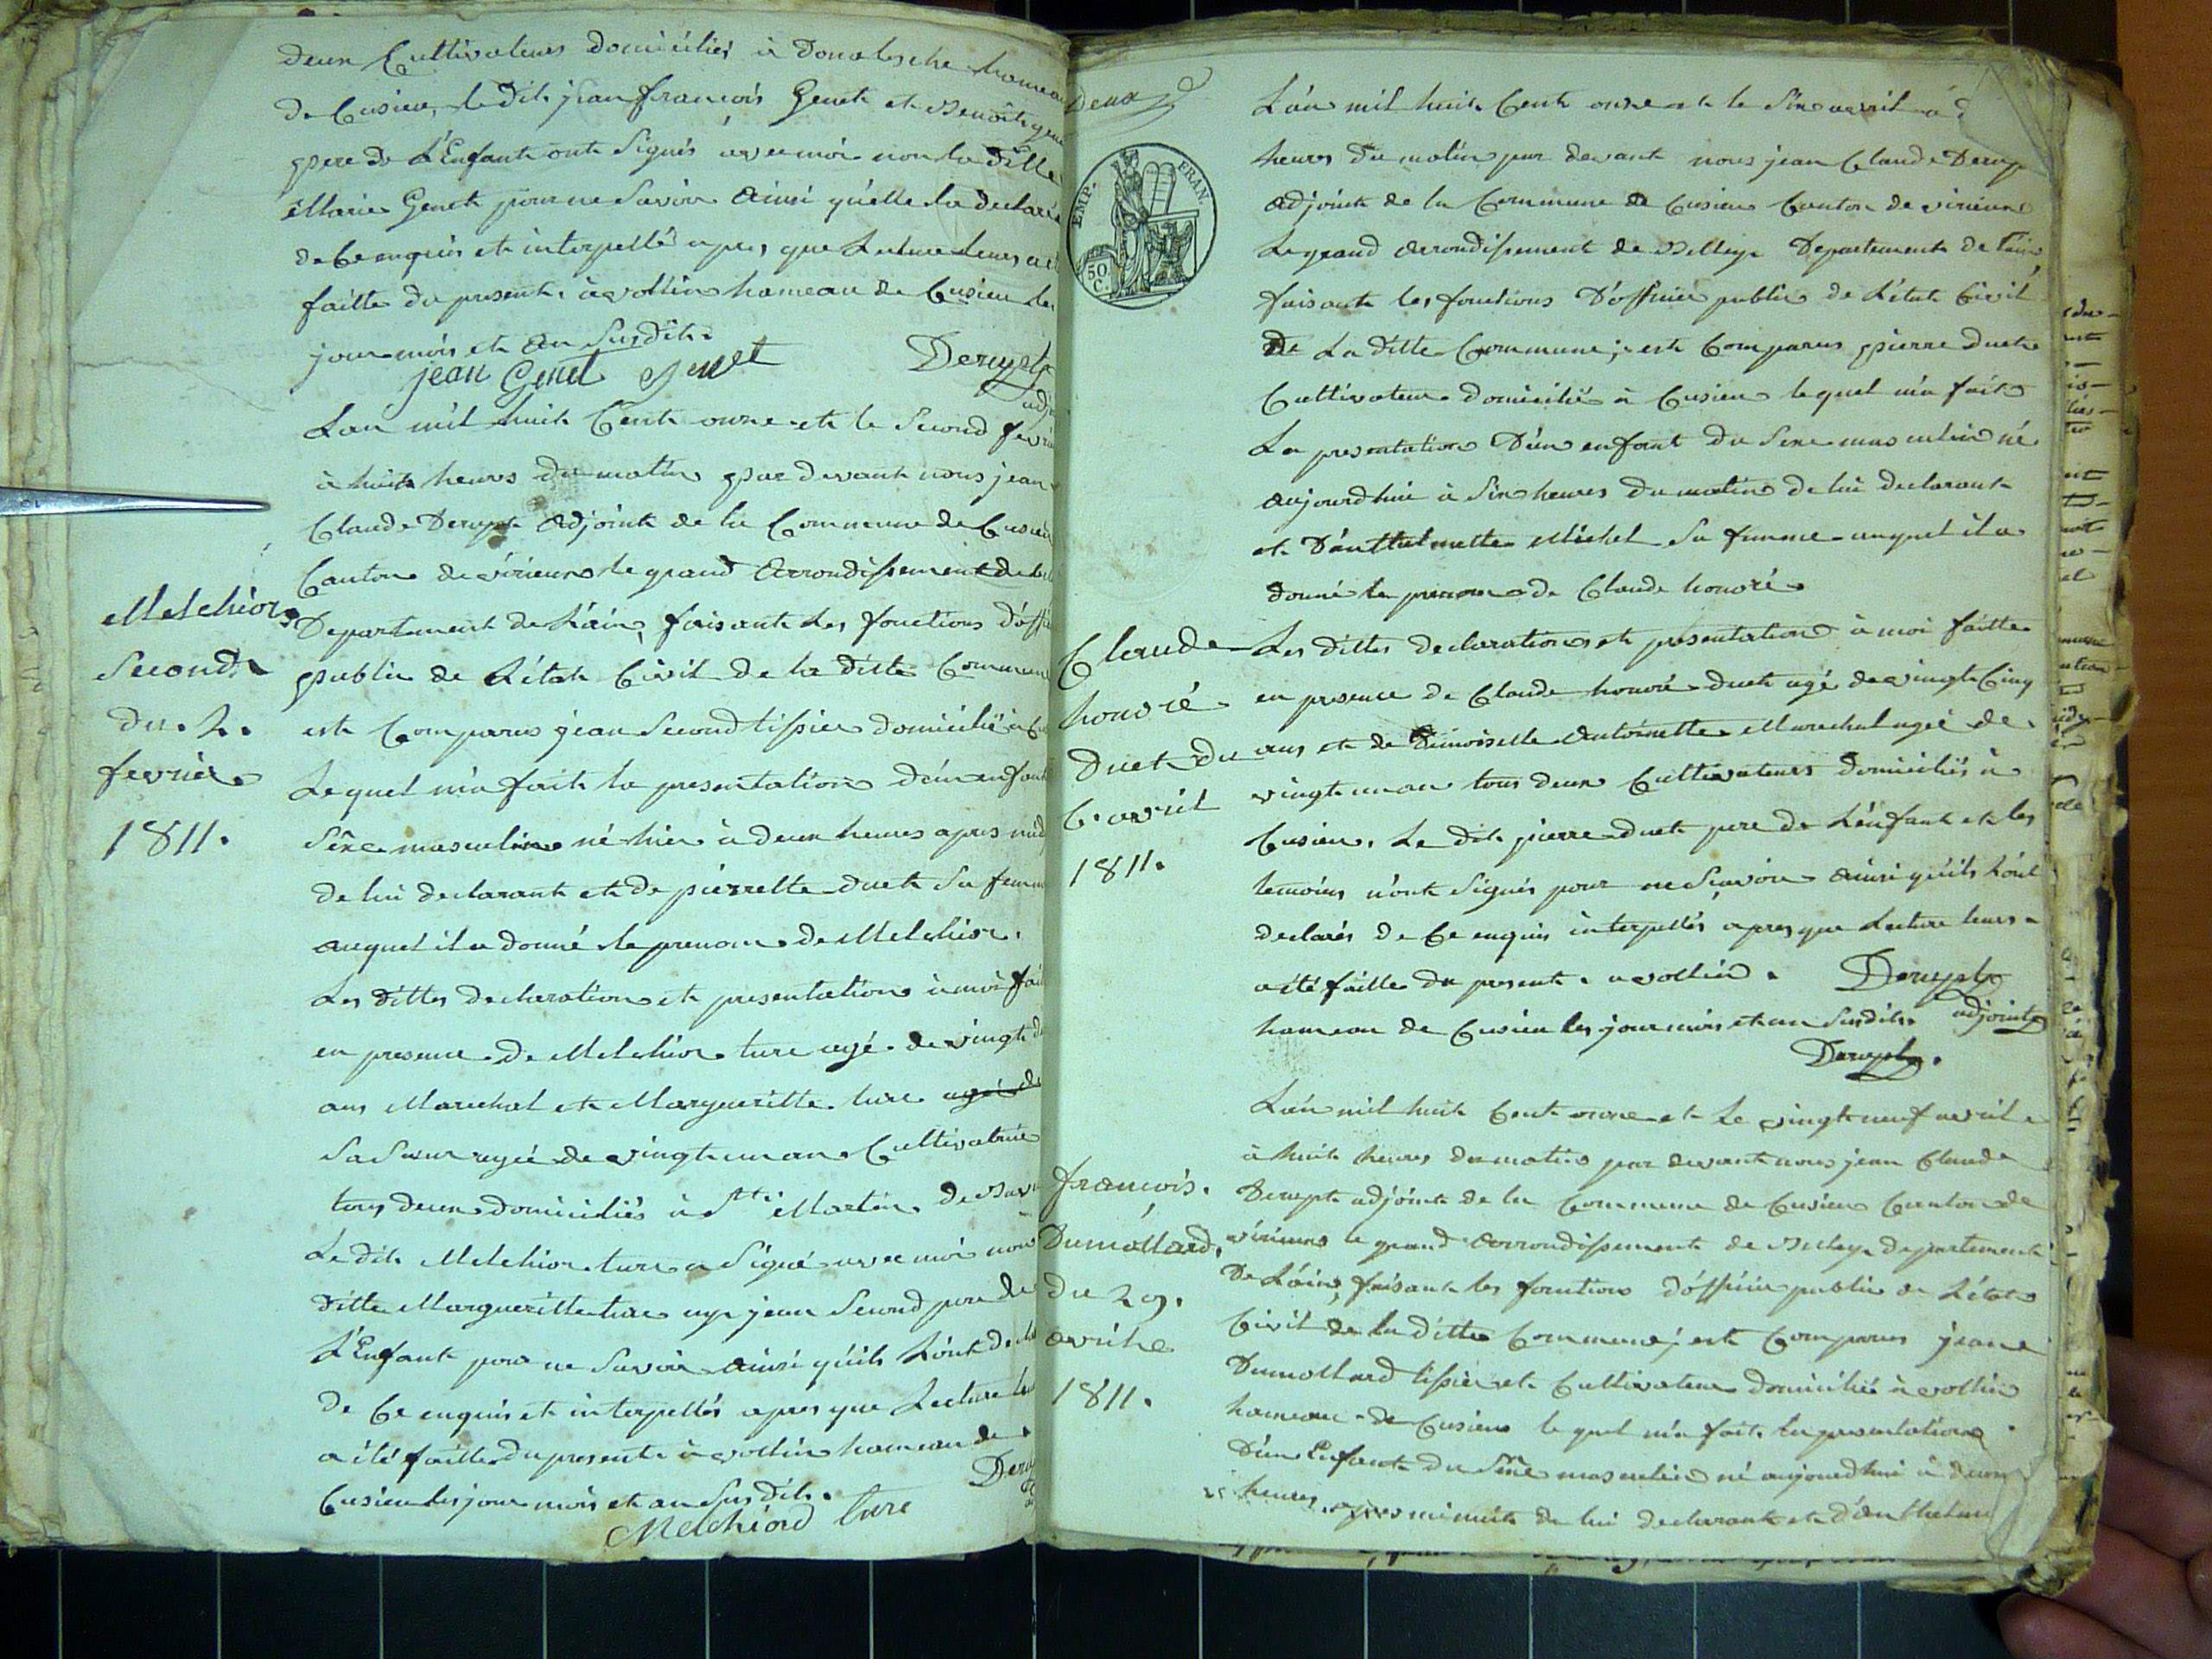 deux Cultivateurs domiciliés à
de Cusieu, le dit jean françois Genet et Benoit
pere de L'Enfant ont Signés avec moi non la ditte
Marie Genet pour ne Savoir Ainsi qu'elle la declaré
de Ce enquis et interpellés apres que Lecture leurs a
faitte du present, à vollien hameau de Cusieu les
jour mois et an Susdit.
jean Genet Genet Derupt
Lan mil huit Cent onze et le Second
à huit heures du matin par devant nous jean
Claude Derupt Adjoint de la Commune de Cusieu
Canton de virieux le grand Arrondissement de
Melchior
Departement de Lain, faisant les fonctions
Second
public de Létat Civil de la ditte Commune
du. 2.
est Comparus jean Second tissier domicilié à
fevrier
Lequel m'a fait la presentation d'un enfant
1811.
Sexe masculin né hier à deux heures apres
de lui declarant et de pierrette duet Sa femme
auquel il a donné le prenom de Melchior.
Les dittes declaration et presentation à moi
en presence de Melchior ture agé de vingt
ans Marechal et Margueritte ture agé de
Sa Sœur agée de vingt un an Cultivatrice
tous deux domiciliés à St Martin de
Le dit Melchior ture a Signé avec moi non
ditte Margueritte ture ny jean Second pere de
L'Enfant pour ne Savoir ainsi qu'ils L'ont
de Ce enquis et interpellés apres que Lecture
a été faitte du present à vollien hameau de
Cusieu les jour mois et an Sus dit.
Melchiord ture
deux
EMP. FRAN.
50 C.
L'an mil huit Cent onze et le Six avril à
heures du matin par devant nous jean Claude
adjoint de la Commune de Cusieu Canton de virieux
Le grand arrondissement de Belley Departement de l'ain,
faisant les fonctions D'officier public de L'état Civil
De La ditte Commune; est Comparus pierre duet
Cultivateur domicilié à Cusieu lequel m'a fait
La presentation D'un enfant du Sexe masculin né
aujourdhui à Six heures du matin de lui declarant
et D'anthelmette Michel Sa femme auquel il a
donné le prenom de Claude honoré.
Claude
Les dittes declaration et presentation à moi faitte
honoré
en presence de Claude honoré duet agé de vingt Cinq
Duet du
ans et de Demoiselle Antoinette Marechal agée de
6. avril
vingt un an tous deux Cultivateurs domiciliés à
1811.
Cusieu. Le dit pierre duet pere de L'enfant et les
temoins n'ont Signés pour ne Scavoir ainsi qu'ils L'ont
declarés de Ce enquis interpellés apres que Lecture leurs
a été faitte du present. a vollien. Derupt
hameau de Cusieu les jour mois et an Susdit. adjoint
Derupt.
L'an mil huit Cent onze et Le vingt neuf avril
à huit heures du matin par devant nous jean Claude
françois.
Derupt adjoint de la Commune de Cusieu Canton de
Dumollard,
virieux le grand arrondissement de Belley departement
du 29.
De L'ain, faisant les fonctions d'officier public de L'état
avril
Civil de la ditte Commune; est Comparus jean
1811.
Dumollard tissier et Cultivateur domicilié à vollien
hameau de Cusieu le quel m'a fait la presentation
D'un Enfant du Sexe masculin né aujourdhui à deux
heures apres minuit de lui declarant et